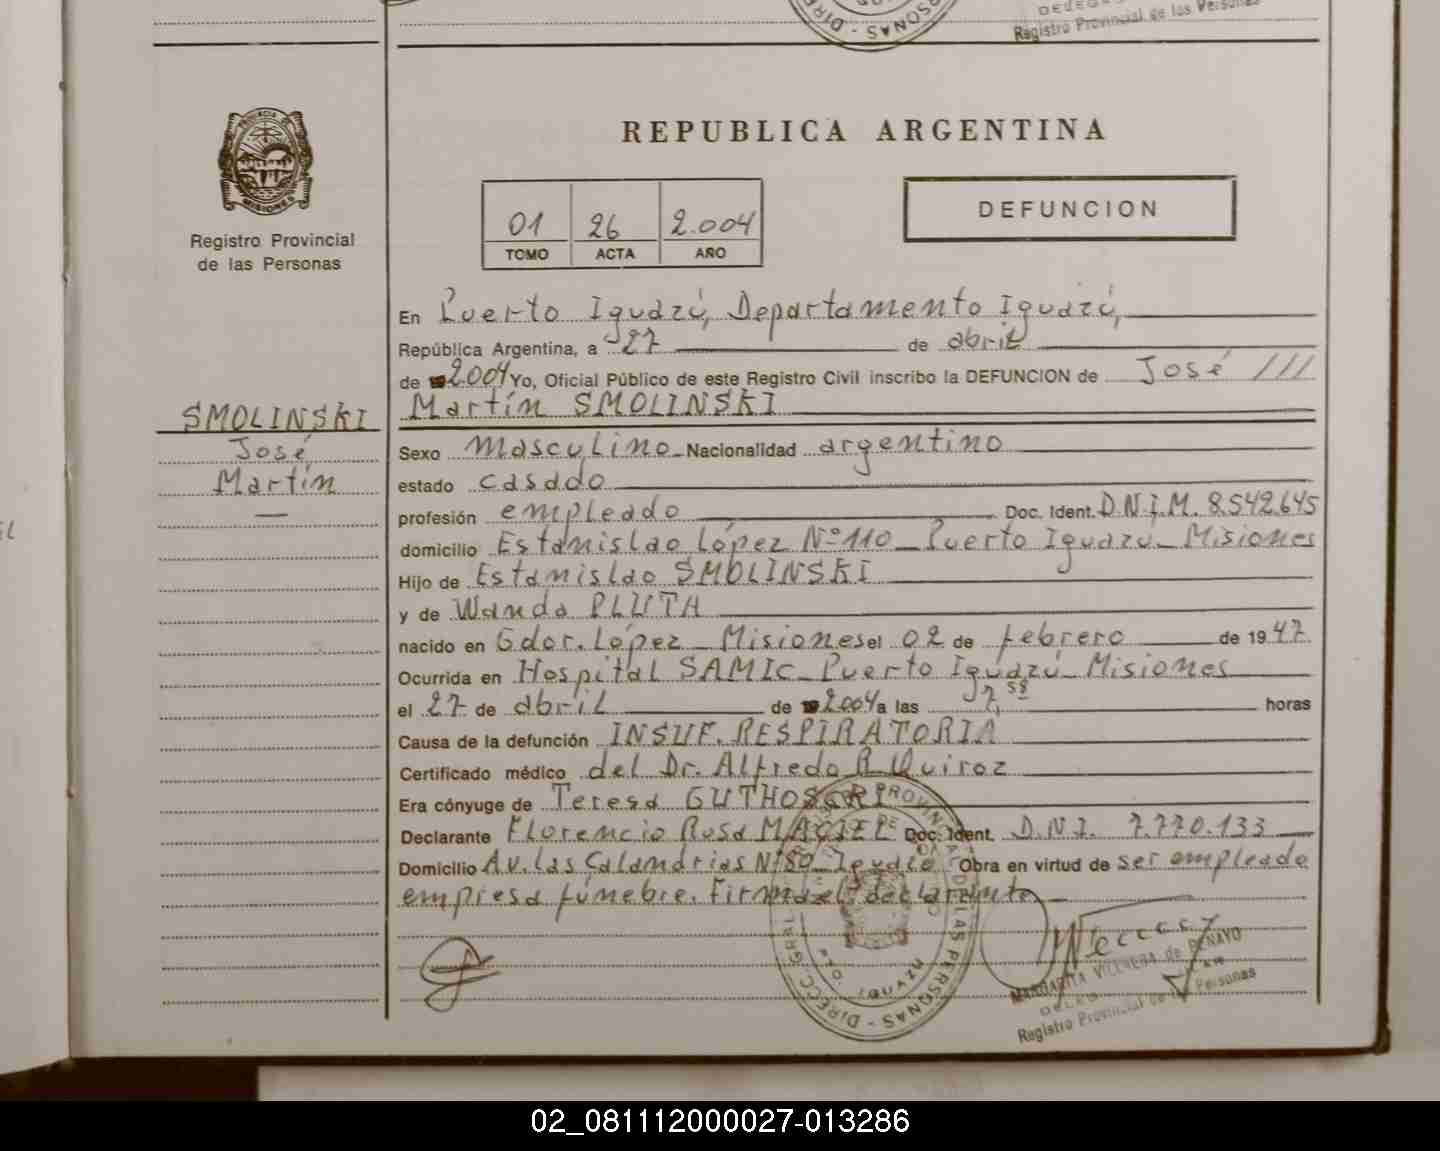 DIRE PERSONAS -
Registro Provincial de las Personas
PROVINCIA DE
MISIONES
REPUBLICA ARGENTINA
01 26 2.004
TOMO ACTA AÑO
DEFUNCION
Registro Provincial
de las Personas
En Puerto Iguazú, Departamento Iguazú,
República Argentina, a 27 de abril
de 2004 Yo, Oficial Público de este Registro Civil inscribo la DEFUNCION de José ///
Martín SMOLINSKI
SMOLINSKI
José
Martín
Sexo masculino Nacionalidad argentino
estado casado
profesión empleado Doc. Ident. D.N.I.M. 8.542.645
domicilio Estanislao López Nº 110 _ Puerto Iguazu _ Misiones
Hijo de Estanislao SMOLINSKI
y de Wanda PLUTA
nacido en Gdor. López _ Misiones el 02 de febrero de 1947.
Ocurrida en Hospital SAMIC _ Puerto Iguázú _ Misiones
el 27 de abril de 2004 a las 7,58 horas
Causa de la defunción INSUF. RESPIRATORIA
Certificado médico del Dr. Alfredo R. Quiroz
Era cónyuge de Teresa
Declarante Florencio Rosa MACIEL Doc. Ident. D.N.I. 7.770.133
Domicilio Av. las Calandrias Nº 80 _ Iguazú Obra en virtud de ser empleado
empresa fúnebre. Firma el declarante
DIRECC. GRAL. PROVINCIAL DE LAS PERSONAS -
IGUAZU
MARGARITA VILLALBA de BENAYO
Registro Provincial de las Personas
02_081112000027-013286